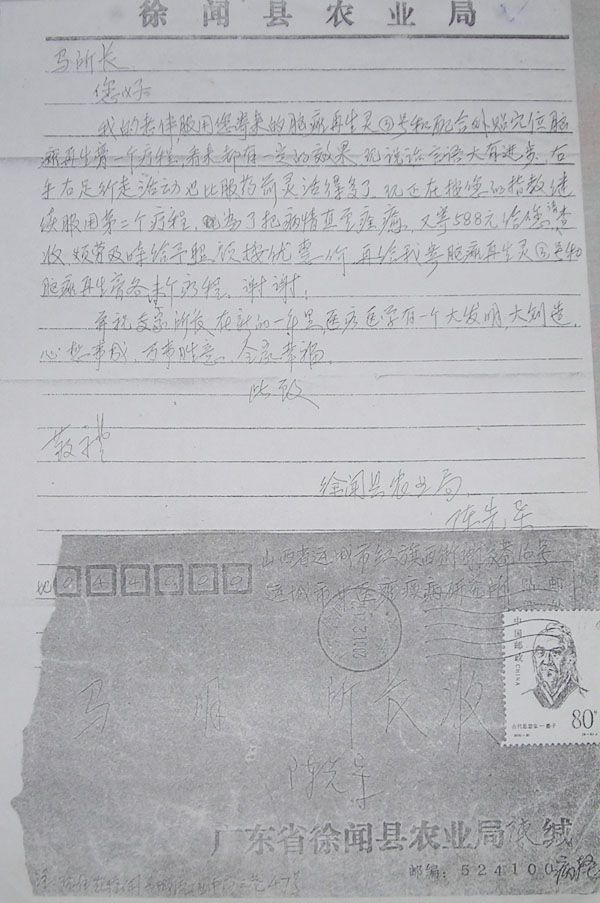 徐闻县农业局
马所长
您好
我的老伴服用您寄来的脑病再生灵③号和配合外贴穴位脑
病再生膏一个疗程,看来都有一定的效果,现说话言语大有进步,右
手右足行走活动也比服药前灵活得多了,现正在按您的指教继
续服用第二个疗程,为了把病情直至痊病,又寄588元给您请查
收,烦劳及时给予照顾按优惠价,再给我寄脑病再生灵③号和
脑病再生膏各一个疗程,谢谢!
并祝 所长在新的一年里,医疗医学有一个大发明,大创造,
心想事成,万事胜意,全家幸福。
此致
敬礼
徐闻县农业局
陈
山西省运城市红旗西街
运城市 研究所
044000
中国邮政 CHINA
80分
马 所长收
陈
广东省徐闻县农业局 缄
邮编:524100